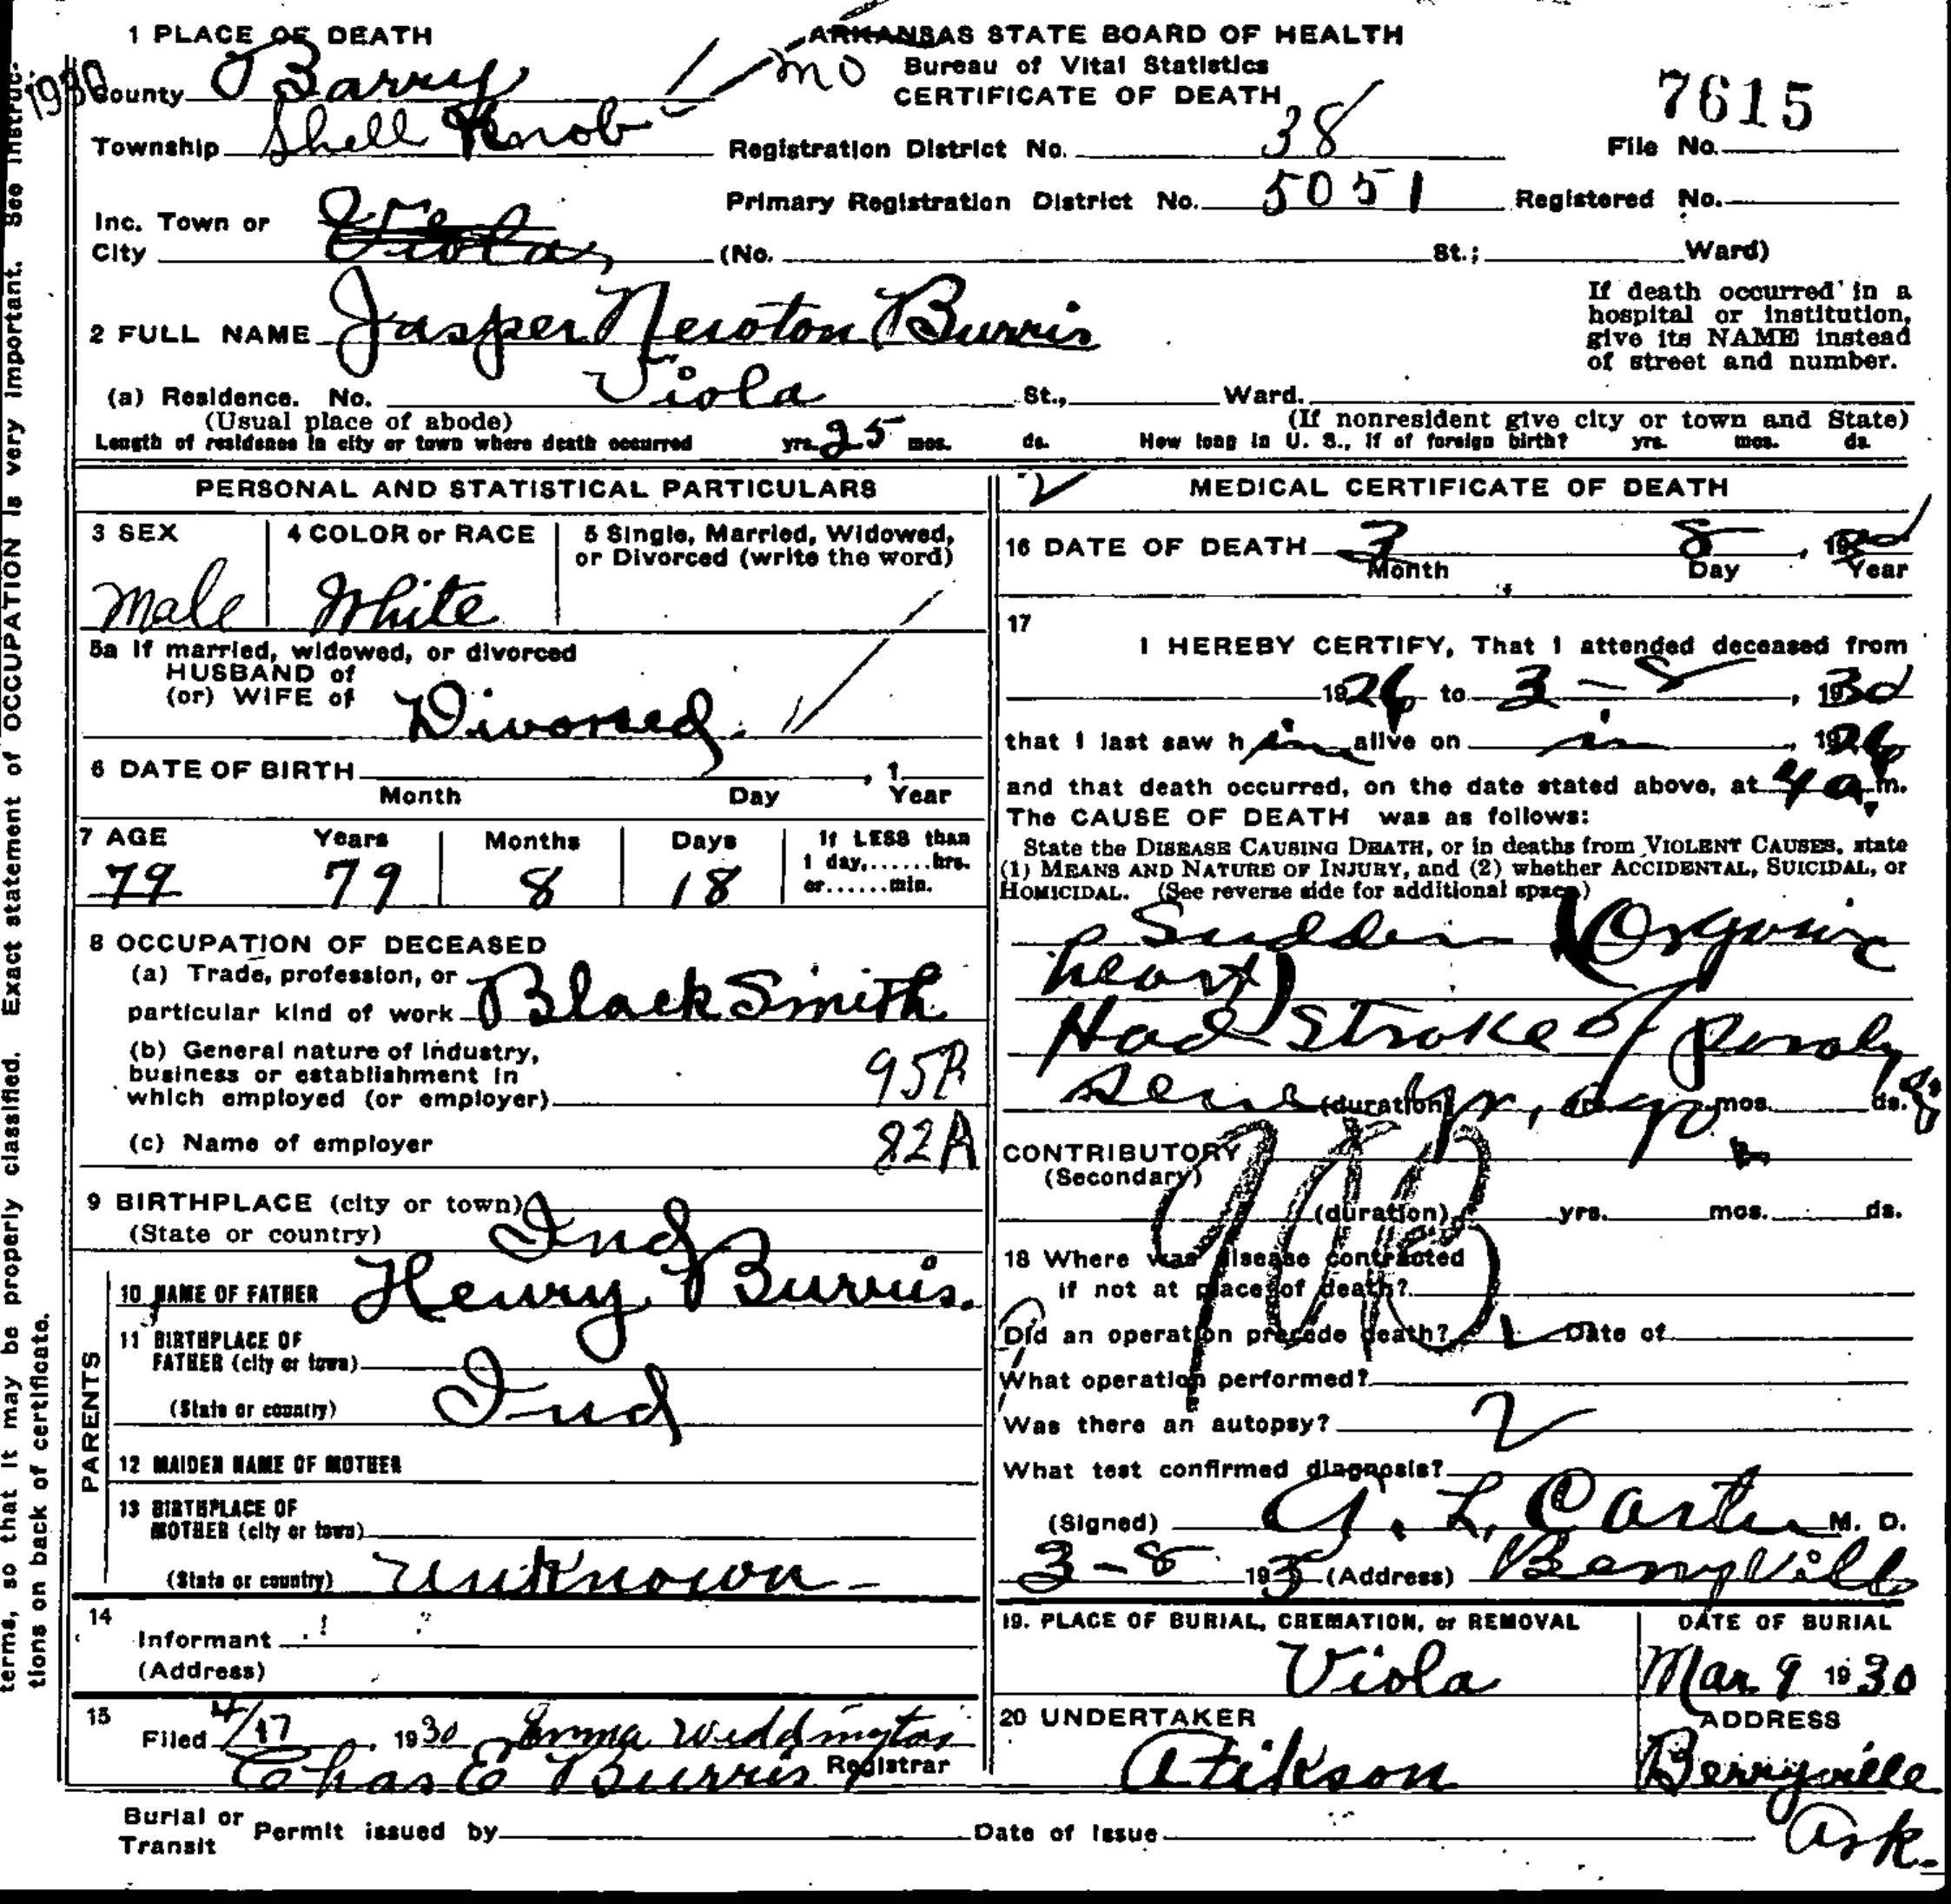 1 PLACE OF DEATH
ARKANSAS STATE BOARD OF HEALTH
mo
Bureau of Vital Statistics
CERTIFICATE OF DEATH
7615
1930
County Barry
Township Shell Knob
Registration District No. 38
File No.
Primary Registration District No. 5051 Registered No.
Inc. Town or
City Viola (No. St.; Ward)
If death occurred in a
hospital or institution,
give its NAME instead
of street and number.
2 FULL NAME Jasper Newton Burris
(a) Residence. No. Viola St., Ward.
(Usual place of abode) (If nonresident give city or town and State)
Length of residence in city or town where death occurred yrs. 25 mos. ds. How long in U. S., if of foreign birth? yrs. mos. ds.
PERSONAL AND STATISTICAL PARTICULARS
3 SEX
Male
4 COLOR or RACE
White
5 Single, Married, Widowed,
or Divorced (write the word)
5a If married, widowed, or divorced
HUSBAND of
(or) WIFE of Divorced
6 DATE OF BIRTH , 1
Month Day Year
7 AGE Years Months Days If LESS than
1 day,......hrs.
or......min.
79 79 8 18
8 OCCUPATION OF DECEASED
(a) Trade, profession, or
particular kind of work BlackSmith
(b) General nature of industry,
business or establishment in
which employed (or employer)
95B
(c) Name of employer
82A
9 BIRTHPLACE (city or town)
(State or country) Ind
PARENTS
10 NAME OF FATHER Henry Burris.
11 BIRTHPLACE OF
FATHER (city or town)
(State or country) Ind
12 MAIDEN NAME OF MOTHER
13 BIRTHPLACE OF
MOTHER (city or town)
(State or country) Unknown
14
Informant
(Address)
15
Filed 4/17, 1930 Emma Weddington
Chas E Burris Registrar
MEDICAL CERTIFICATE OF DEATH
16 DATE OF DEATH 3 8, 1930
Month Day Year
17
I HEREBY CERTIFY, That I attended deceased from
1926 to 3 - 8, 1930
that I last saw h im alive on in, 1926
and that death occurred, on the date stated above, at 4 a. m.
The CAUSE OF DEATH was as follows:
State the DISEASE CAUSING DEATH, or in deaths from VIOLENT CAUSES, state
(1) MEANS AND NATURE OF INJURY, and (2) whether ACCIDENTAL, SUICIDAL, or
HOMICIDAL. (See reverse side for additional space)
Sudden (Organic
heart)
Had stroke of
(duration) yrs. mos. ds.
CONTRIBUTORY
(Secondary)
(duration) yrs. mos. ds.
18 Where was disease contracted
if not at place of death?
Did an operation precede death? Date of
What operation performed?
Was there an autopsy?
What test confirmed diagnosis?
(Signed) L. Carter M. D.
3-8 193 (Address) Berryville
19. PLACE OF BURIAL, CREMATION, or REMOVAL
Viola
DATE OF BURIAL
Mar 9 1930
20 UNDERTAKER
Atikson
ADDRESS
Berryville
Ark.
Burial or
Transit Permit issued by Date of Issue
terms, so that it may be properly classified. Exact statement of OCCUPATION is very important. See instruc-
tions on back of certificate.